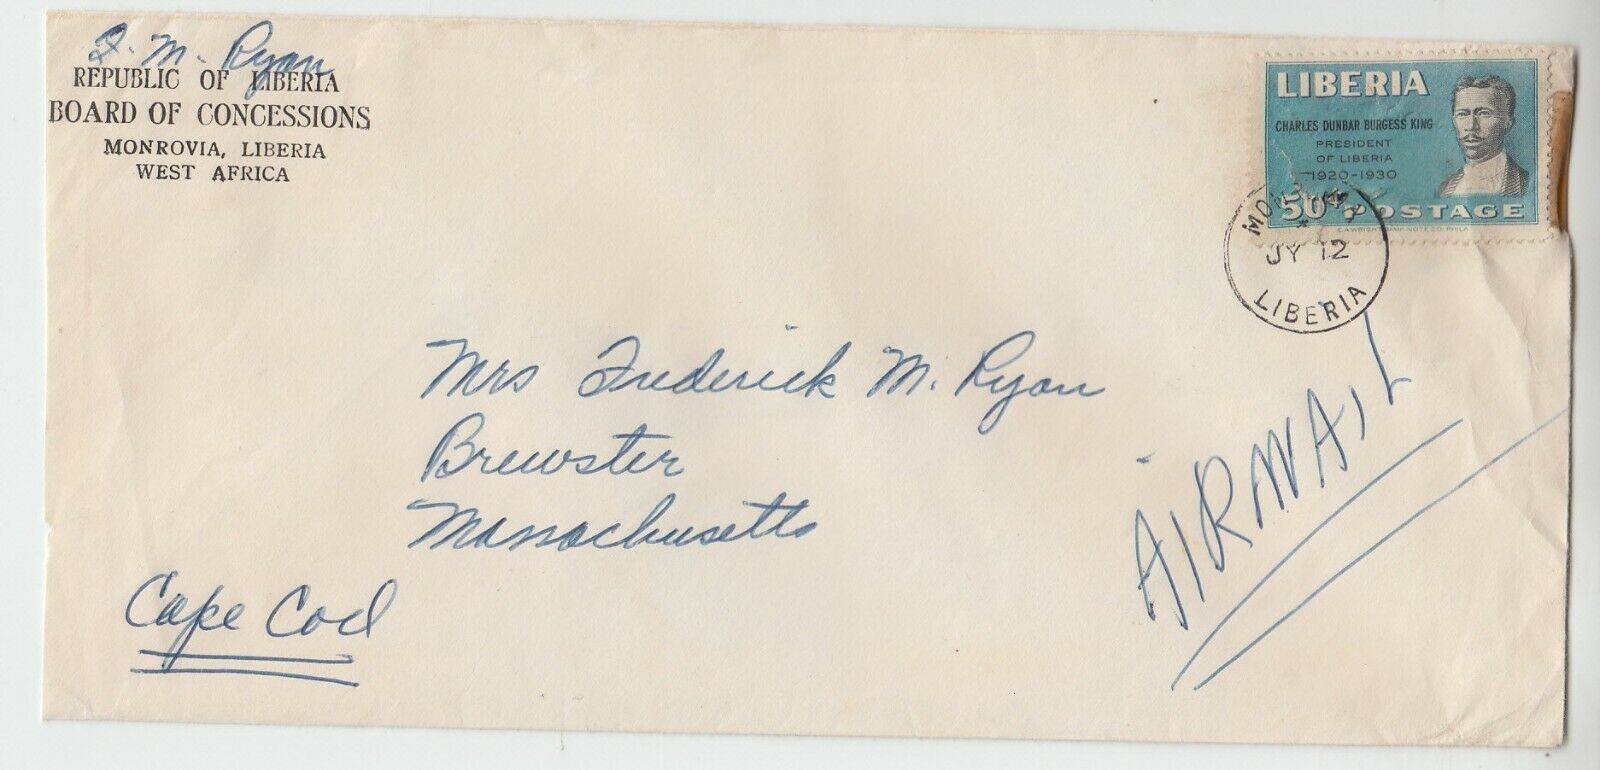 F. M. Ryan
REPUBLIC OF LIBERIA
BOARD OF CONCESSIONS
MONROVIA, LIBERIA
WEST AFRICA
LIBERIA
CHARLES DUNBAR BURGESS KING
PRESIDENT
OF LIBERIA
1920-1930
50¢ POSTAGE
E.A.WRIGHT BANK NOTE CO. PHILA.
MONROVIA
JY 12
LIBERIA
Mrs Frederick M. Ryan
Brewster
Massachusetts
AIRMAIL
Cape Cod